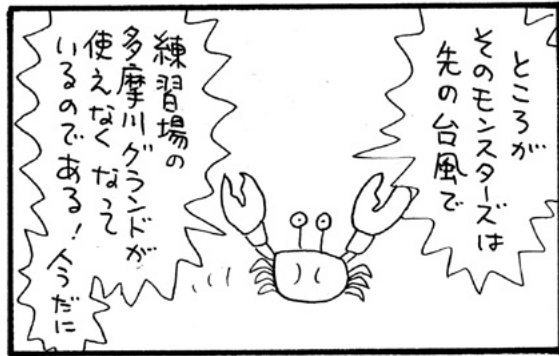 ところが
そのモンスターズは
先の台風で
練習場の
多摩川グランドが
使えなくなって
いるのである！今だに